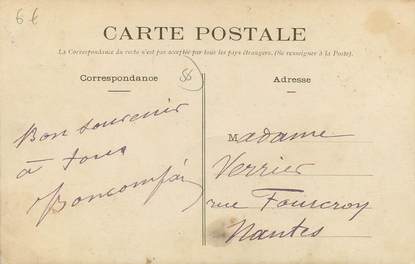 6€
CARTE POSTALE
La Correspondance du recto n'est pas acceptée par tous les pays étrangers. (Se renseigner à la Poste).
Correspondance
8
Adresse
Bon souvenir
à tous
Madame
Verrier
rue Fourcroy
Nantes